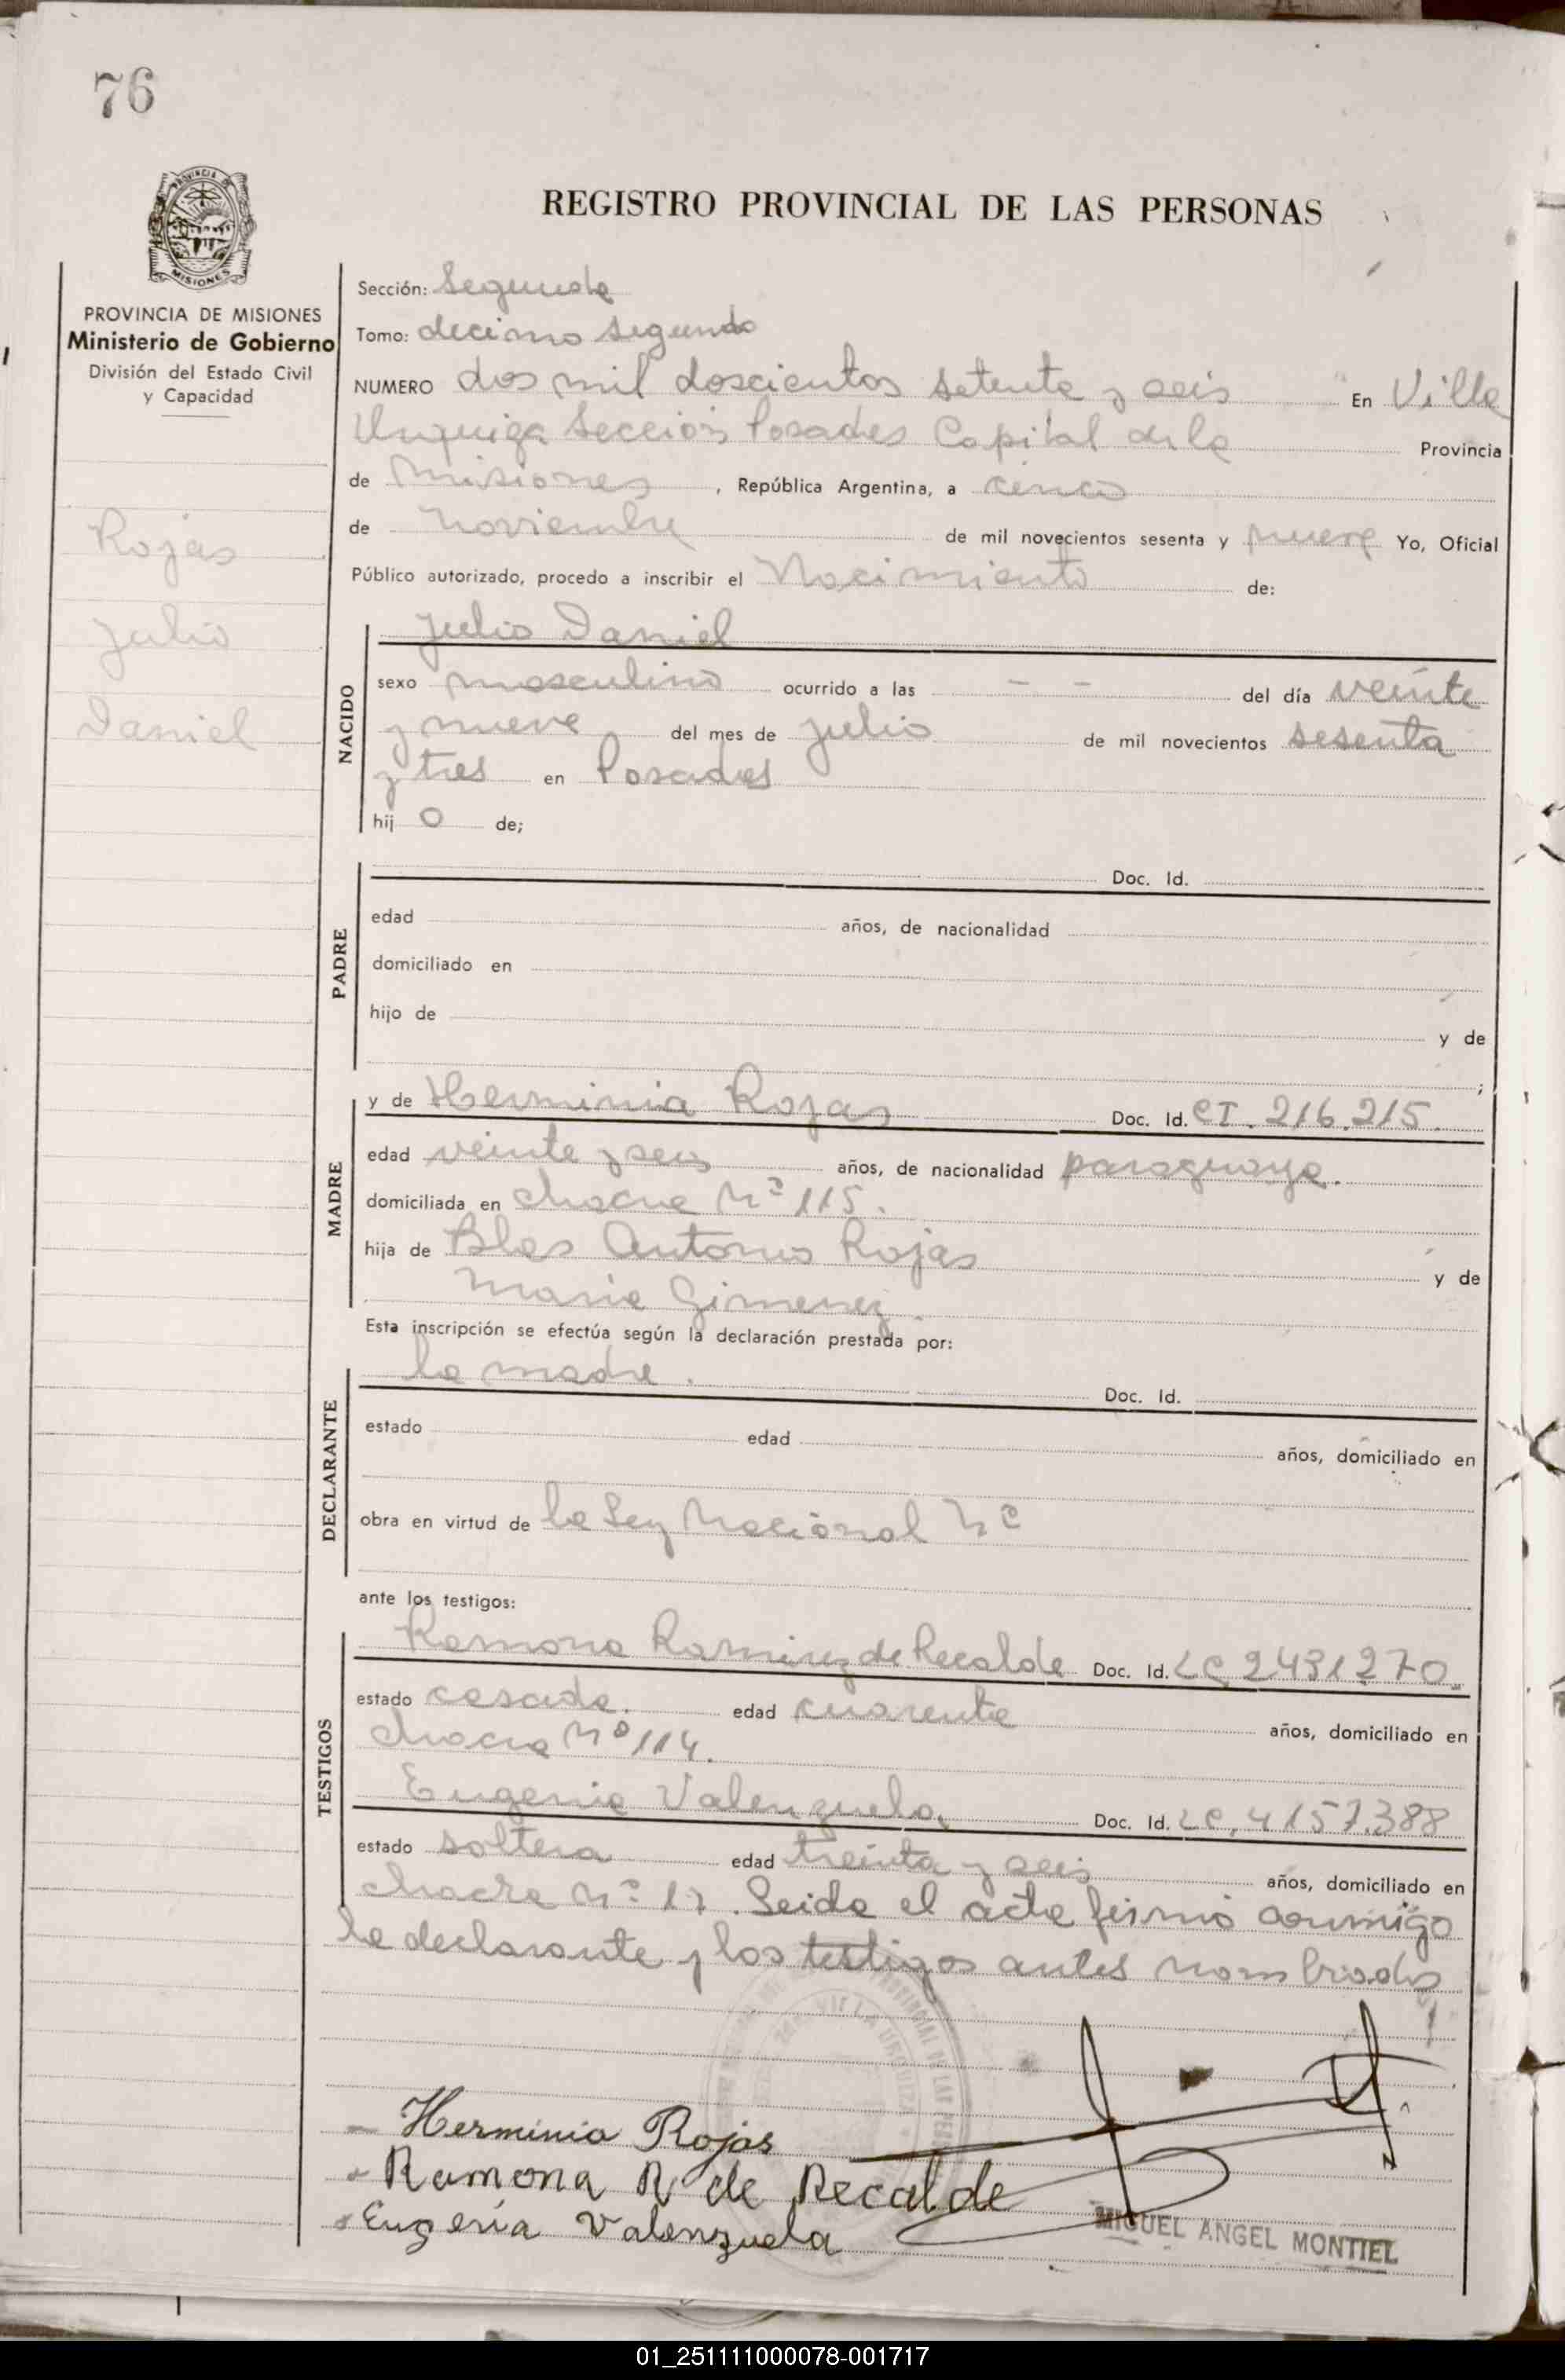 76
PROVINCIA DE MISIONES
REGISTRO PROVINCIAL DE LAS PERSONAS
PROVINCIA DE MISIONES
Ministerio de Gobierno
División del Estado Civil
y Capacidad
Rojas
Julio
Daniel
Sección: Segunda
Tomo: decimo segundo
NUMERO dos mil doscientos setenta y seis En Villa
Urquiza Sección Posadas Capital de la Provincia
de Misiones, República Argentina, a cinco
de Noviembre de mil novecientos sesenta y nueve Yo, Oficial
Público autorizado, procedo a inscribir el Nacimiento de:
NACIDO
Julio Daniel
sexo masculino ocurrido a las - - del día veinte
y nueve del mes de julio de mil novecientos sesenta
y tres en Posadas
hij o de;
PADRE
Doc. Id.
edad años, de nacionalidad
domiciliado en
hijo de y de
;
MADRE
y de Herminia Rojas Doc. Id. CI. 216.215.
edad veinte y seis años, de nacionalidad paraguaya.
domiciliada en chacra Nº 115.
hija de Blas Antonio Rojas y de
Maria Gimenez.
Esta inscripción se efectúa según la declaración prestada por:
DECLARANTE
la madre. Doc. Id.
estado edad años, domiciliado en
obra en virtud de la Ley Nacional Nº
ante los testigos:
TESTIGOS
Ramona Ramirez de Recalde Doc. Id. LC 2431270.
estado casada. edad cuarenta años, domiciliado en
chacra Nº 114.
Eugenia Valenzuela, Doc. Id. LC. 4157.388
estado soltera edad treinta y seis años, domiciliado en
chacra Nº 17. Leida el acta firmó conmigo
la declarante y los testigos antes nombrados
Herminia Rojas
Ramona R de Recalde
Eugenia Valenzuela
MIGUEL ANGEL MONTIEL
01_251111000078-001717